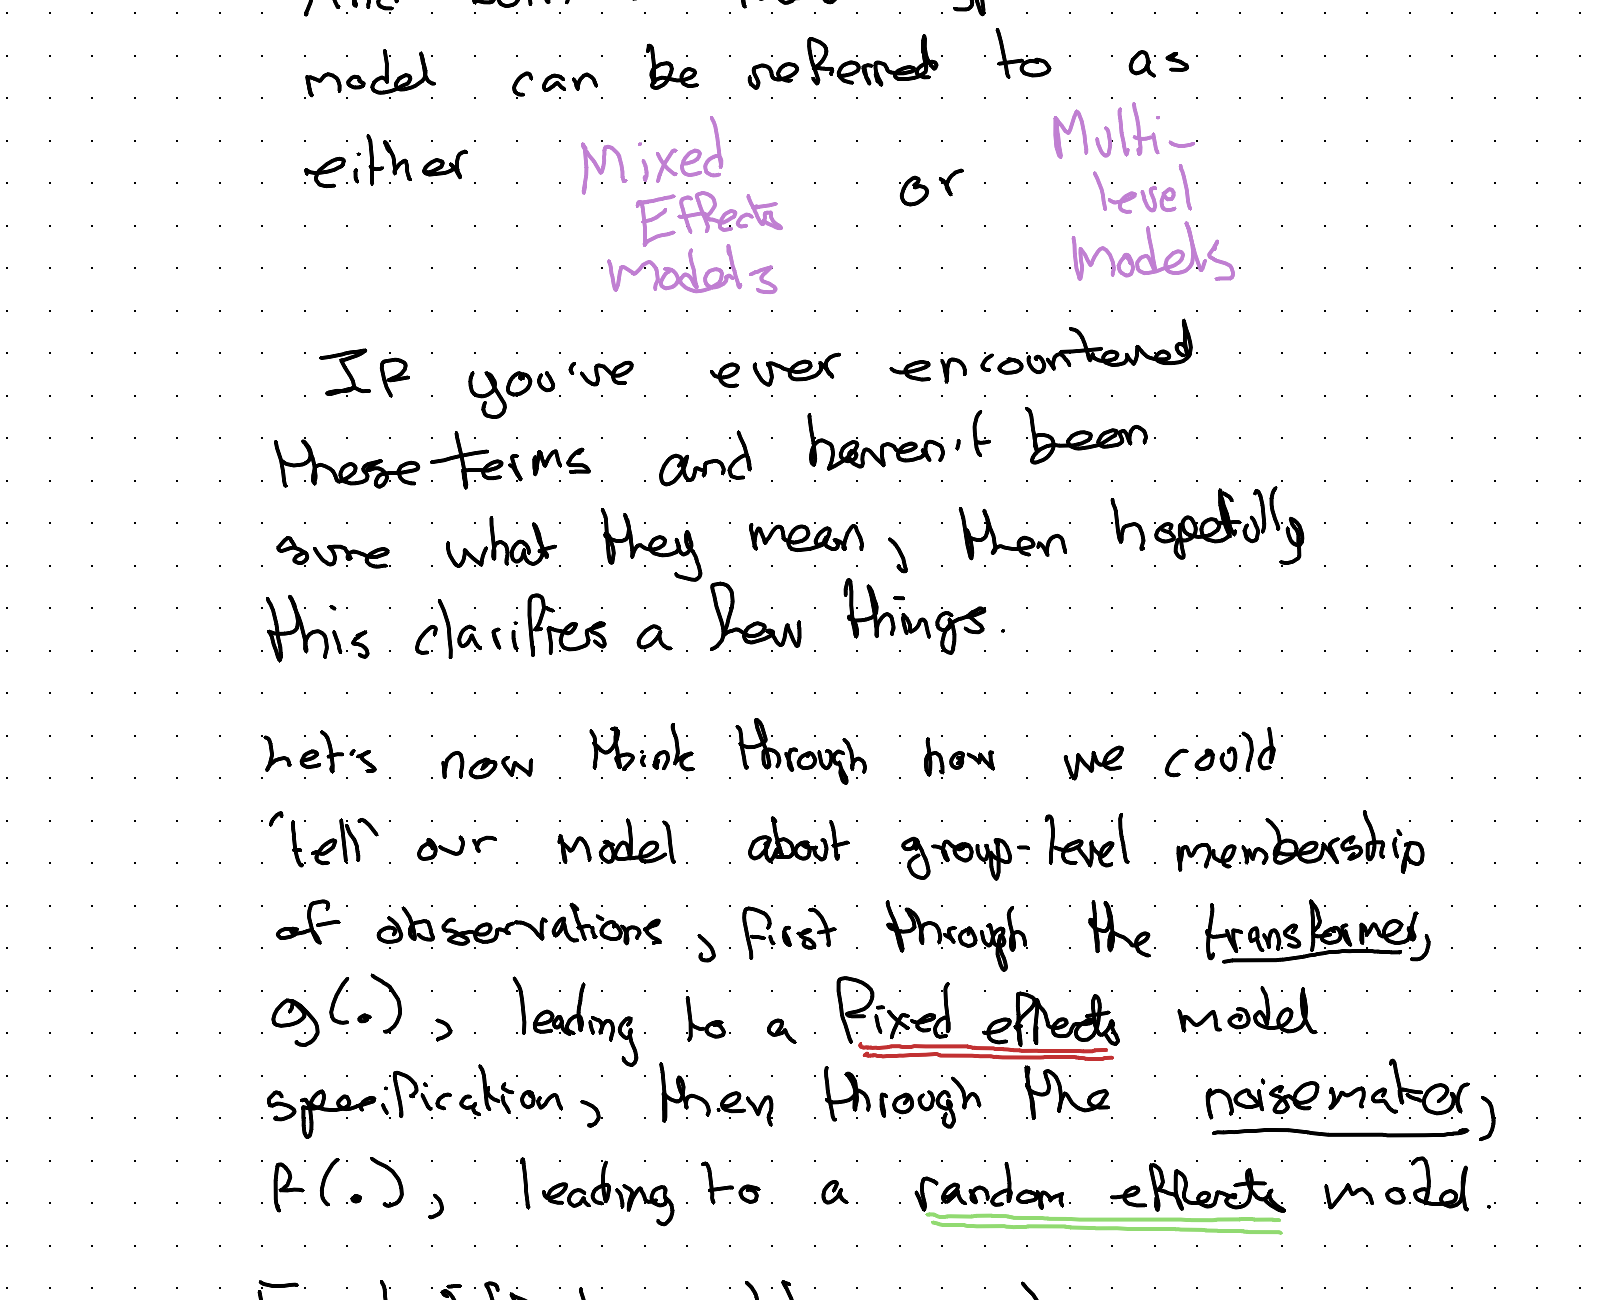 model can be referred to as
either Mixed Effects Models or Multi-level Models
If you've ever encountered
these terms and haven't been
sure what they mean, then hopefully
this clarifies a few things.
Let's now think through how we could
'tell' our model about group-level membership
of observations, first through the transformer,
g(.), leading to a fixed effects model
specification, then through the noisemaker,
f(.), leading to a random effects model.